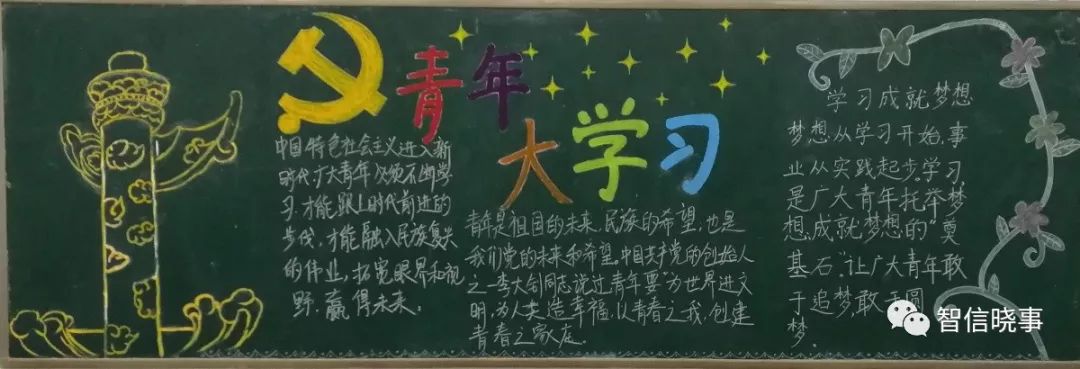 青年
大学习
中国特色社会主义进入新
时代广大青年必须不断学
习,才能跟上时代前进的
步伐,才能融入民族复兴
的伟业,拓宽眼界和视
野,赢得未来。
青年是祖国的未来,民族的希望,也是
我们党的未来和希望,中国共产党的创始人
之一李大钊同志说过青年要"为世界进文
明,为人类造幸福,以青春之我,创建
青春之家庭
学习成就梦想
梦想从学习开始,事
业从实践起步,学习
是广大青年托举梦
想,成就梦想的"奠
基石",让广大青年敢
于追梦敢于圆
梦.
智信晓事